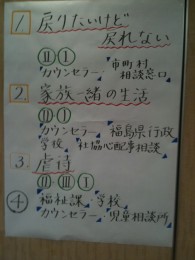 1. 戻りたいけど
戻れない
Ⅱ Ⅰ
カウンセラー 市町村
相談窓口
2. 家族一緒の生活
Ⅱ Ⅰ
カウンセラー 福島県行政
学校 社協心配事相談
3. 虐待
Ⅱ・Ⅲ Ⅰ
④ 福祉課・学校
カウンセラー 児童相談所